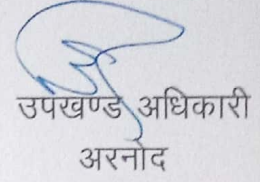 उपखण्ड अधिकारी
अरनोद